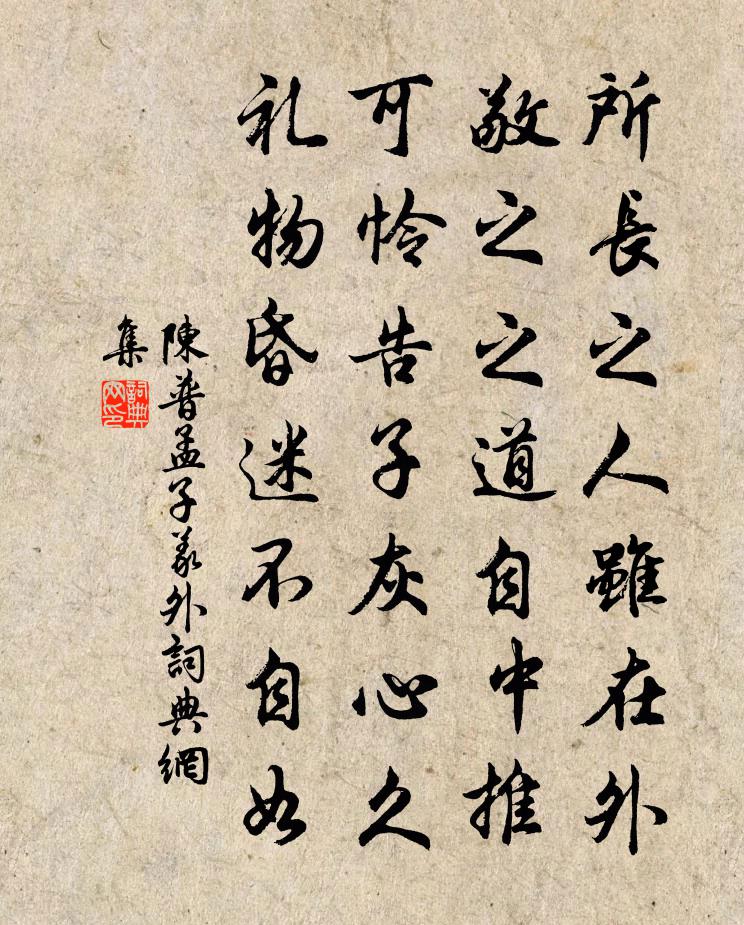 所長之人雖在外
敬之之道自中推
可怜告子灰心久
礼物昏迷不自知
陳普孟子義外詞典網
集
詞典网印